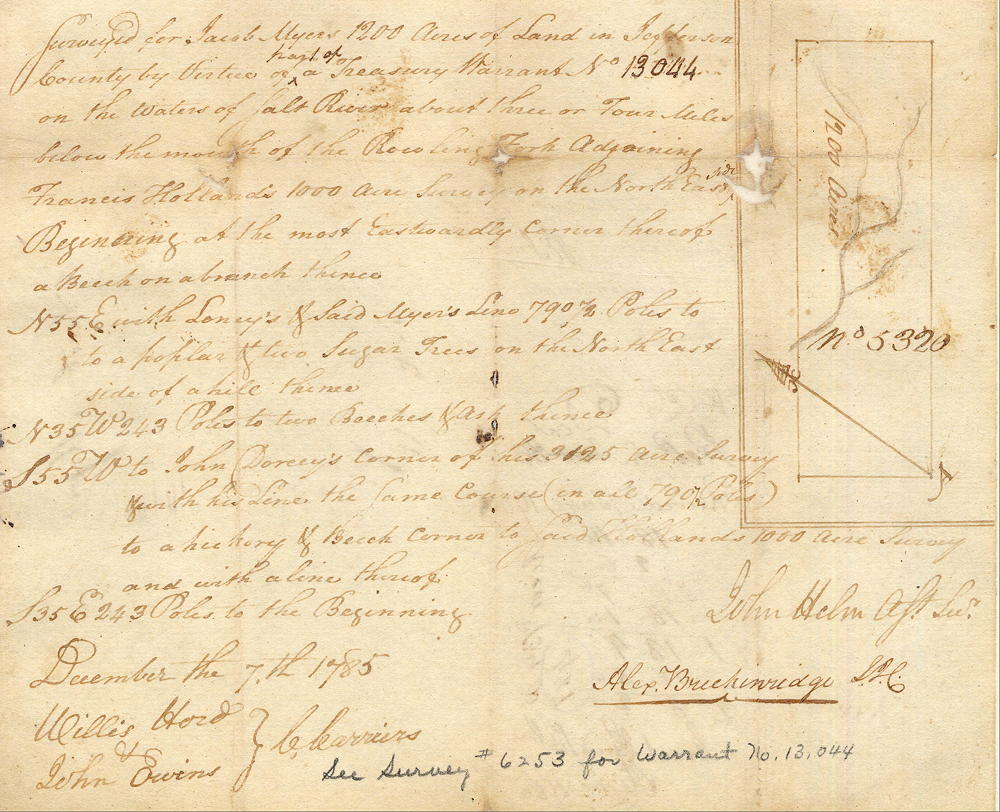 Surveyed for Jacob Myers 1200 Acres of Land in Jefferson
County by Virtue of part of a Treasury Warrant No 13044
on the Waters of Salt River about three or Four Miles
below the mouth of the Rowling Fork Adjoining
Francis Holland's 1000 Acre Survey on the North East side
Beginning at the most Eastwardly Corner thereof
a Beech on a branch thence
N55E with Loney's & Said Myer's Line 790½ Poles to
to a poplar & two Sugar Trees on the North East
side of a hill thence
N35W 243 Poles to two Beeches & Ash thence
S55W to John Dorcey's Corner of his 3125 Acre Survey
& with his Line the Same Course (in all 790½ Poles)
to a hickory & Beech Corner to Said Hollands 1000 Acre Survey
and with a line thereof
S35E 243 Poles to the Beginning
December the 7.th 1785
Willis Hord
&
John Ewins
C Carriers
John Helm Asst. Sur.
Alex. Breckenridge S.J.C.
See Survey #6253 for Warrant No. 13,044
1200 Acres
No 5320